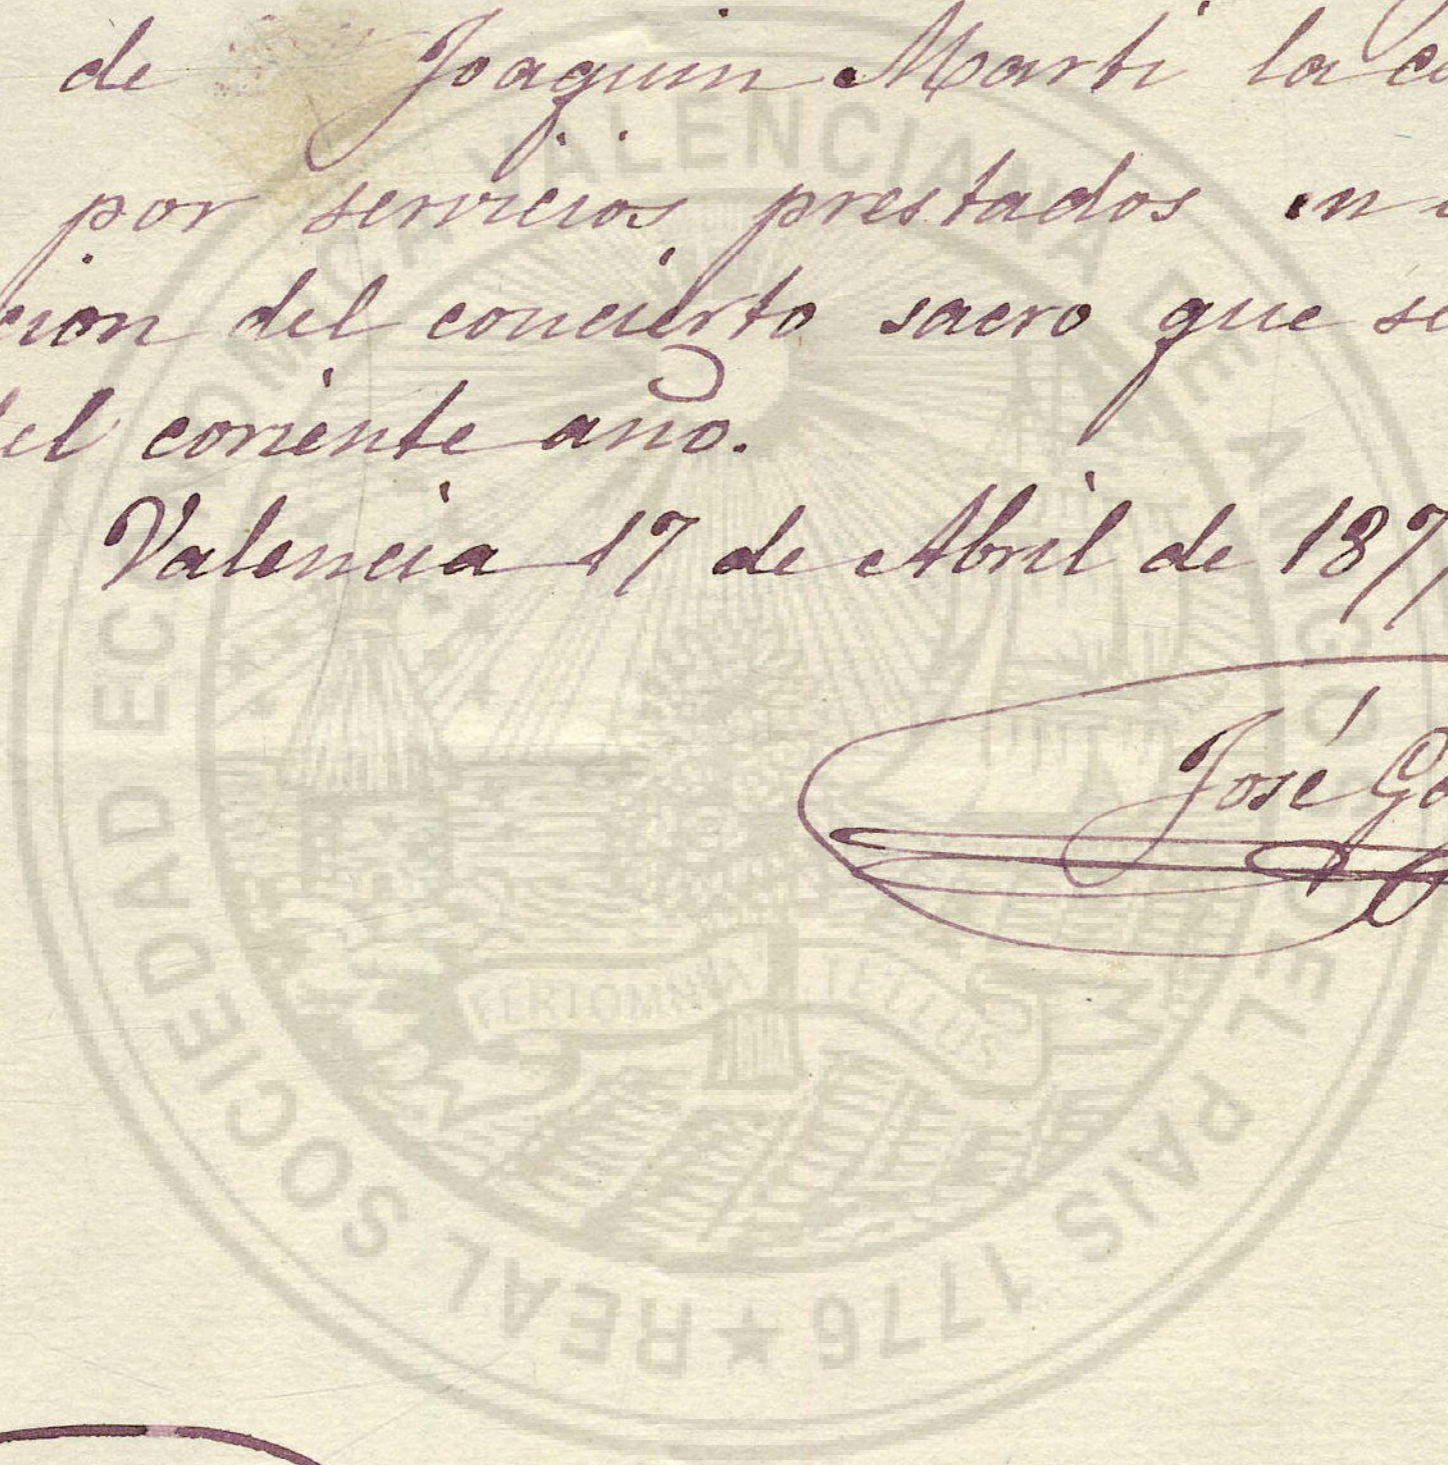 de Joaquin Marti la
por servicios prestados en
cion del concierto sacro que se
del coriente año.
Valencia 17 de Abril de 187
José
REAL SOCIEDAD ECONOMICA VALENCIANA DE AMIGOS DEL PAIS 1776 ★
FERT OMNIA TELLUS